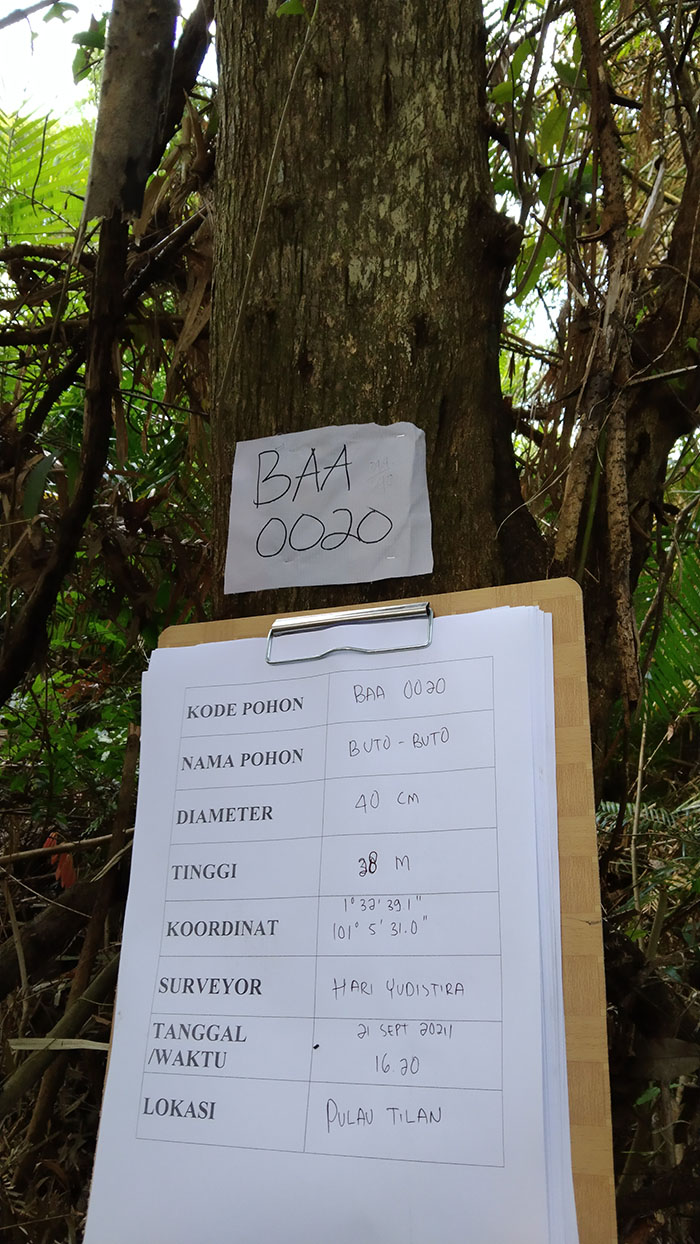 BAA
0020
KODE POHON BAA 0020
NAMA POHON BUTO - BUTO
DIAMETER 40 CM
TINGGI 38 M
KOORDINAT 1° 32' 39.1"
101° 5' 31.0"
SURVEYOR HARI YUDISTIRA
TANGGAL 21 SEPT 2021
/WAKTU 16.20
LOKASI PULAU TILAN